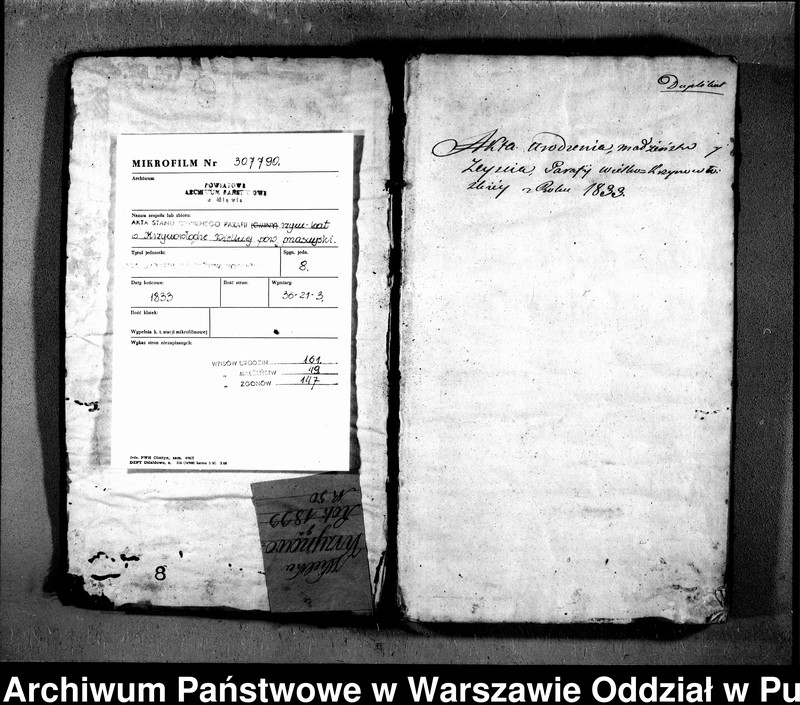 MIKROFILM Nr 307790.
Archiwum
POWIATOWE
ARCHIWUM PAŃSTWOWE
w Mławie
Nazwa zespołu lub zbioru:
AKTA STANU CYWILNEGO PARAFII (GMINY) rzym-kat
w Krzynowłodze Wielkiej pow. przasnyski.
Tytuł jednostki:
Sygn. jedn.
8.
Daty końcowe:
1833
Ilość stron:
Wymiary
36-21-3.
Ilość klatek:
Wypełnia k. t. stacji mikrofilmowej
Wykaz stron niezapisanych:
WPISÓW URODZIN 161.
" MAŁŻEŃSTW 49
" ZGONÓW 147
8
Wielka
Krzynowo
Rok 1833
N 50
Duplikat
Akta Urodzenia, małżeństw y
Zeyścia, Parafy wielko-Krzynowło-
z Roku 1833.
Archiwum Państwowe w Warszawie Oddział w Pu